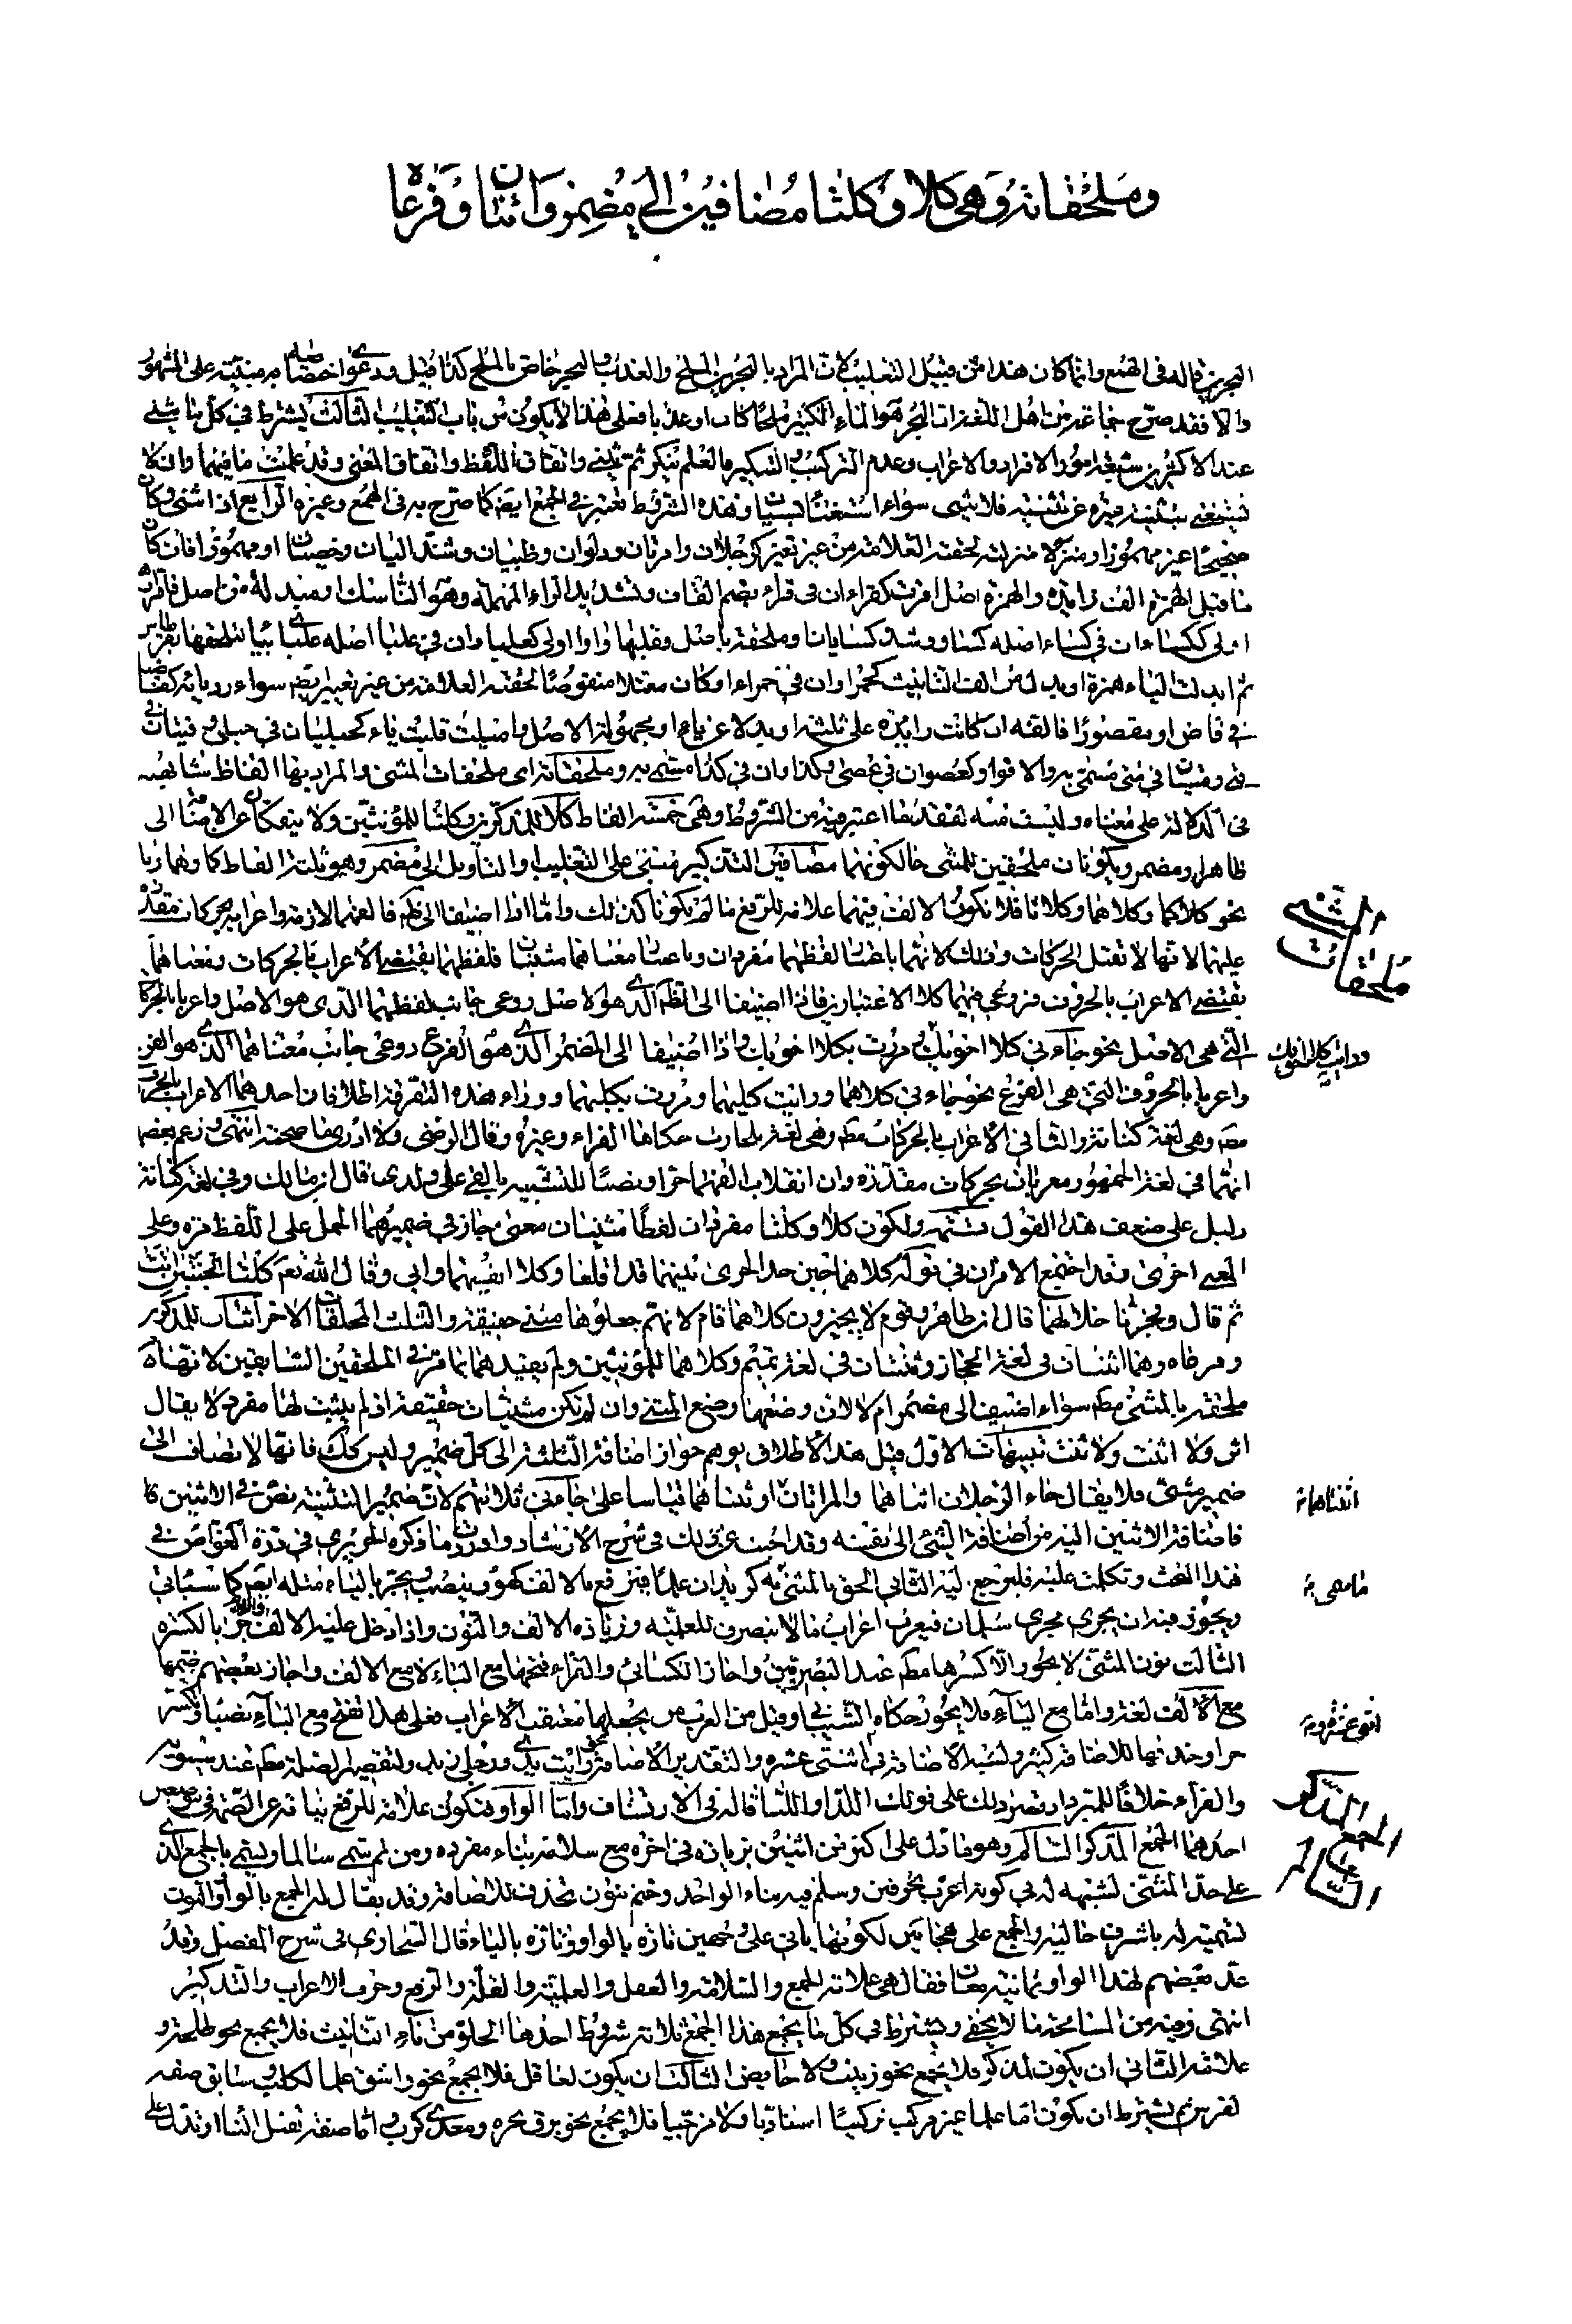 وملحقاته وهي كلا وكلتا مضافين الى مضمر واثنان وفرعاه
البحرين قاله في الهمع وانما كان هذا من قبيل التغليب لان المراد بالبحرين الملح والعذب والبحر خاص بالملح كذا قيل ودعوى اختصاصه به مبنية على المشهور
والا فقد صرح جماعة من اهل اللغة ان البحر هو الماء الكثير ملحا كان او عذبا فعلى هذا لا يكون من باب التغليب الثالث يشترط في كل ما يثنى
عند الاكثرين شبعة امور الافراد والاعراب وعدم التركيب والتنكير فالعلم ينكر ثم يثنى واتفاق اللفظ واتفاق المعنى وقد علمت ما فيهما وان لا
يستغنى بتثنية غيره عن تثنيته فلا يثنى سواء استغناء بسيان وهذه الشروط تعتبر في الجمع ايضا كما صرح به في الهمع وغيره الرابع اذا اثنى وكان
صحيحا غير مهموز او منزلا منزلته لحقته العلامة من غير تغيير كرجلان وامرتان ودلوان وظبيان وشذ اليان وخصيان او مهموزا فان كان
ما قبل الهمزة الف زايدة والهمزة اصل اقرت كقراءان في قراء بضم القاف وتشديد الراء المهملة وهو الناسك او مبدلة من اصل فاقرارها
اولى ككساءان في كساء اصله كساو وشذ كسايان او ملحقة باصل وقلبها واوا اولى كعلباوان في علباء اصله علباي
ثم ابدلت الياء همزة او بدلا من الف التانيث كحمراوان في حمراء او كان معتلا منقوصا لحقته العلامة من غير تغيير ايضا سواء
في قاض او مقصورا فالفه ان كانت زايدة على ثلثة او بدلا عن ياء او مجهولة الاصل واميلت قلبت ياء كحبليان في حبلى وفتيان في
فتى ومتيان في متى مسمى به والا فواو كعصوان في عصى وكذاوان في كذا مسمى به وملحقاته اى ملحقات المثنى والمراد بها الفاظ تشابهه
في الدلالة على معناه وليست منه لفقد ما اعتبر فيه من الشروط وهي خمسة الفاظ كلا للمذكرين وكلتا للمؤنثين ولا ينفكان عن الاضافة الى
ظاهر او مضمر ويكونان ملحقين بالمثنى حال كونهما مضافين التذكير مبني على التغليب او التاويل الى مضمر وهو ثلثة الفاظ كما وهما ونا
نحو كلاكما وكلاهما وكلانا فلا تكون الالف فيهما علامة للرفع ما لم يكونا كذلك واما اذا اضيفا الى ظاهر فالفهما لازمة واعرابه بحركات مقدرة
عليهما لانها لا تقبل الحركات وذلك لانهما باعتبار لفظهما مفردان وباعتبار معناهما مثنيان فلفظهما يقتضي الاعراب بالحركات ومعناهما
يقتضي الاعراب بالحروف فروعي فيهما كلا الاعتبارين فاذا اضيفا الى الظاهر الذي هو الاصل روعي جانب لفظهما الذي هو الاصل واعربا بالحركات
التي هي الاصل نحو جاءني كلا اخويك ومررت بكلا اخويك واذا اضيفا الى المضمر الذي هو الفرع روعي جانب معناهما الذي هو الفرع
واعربا بالحروف التي هي الفرع نحو جاءني كلاهما ورايت كليهما ومررت بكليهما ووراء هذه التفرقة اطلاقان احدهما الاعراب بالحروف
مطلقا وهي لغة كنانة والثاني الاعراب بالحركات مطلقا وهي لغة بلحارث حكاها الفراء وغيره وقال الرضى ولا ادري ما صحته انتهى وزعم بعضهم
انهما في لغة الجمهور معربان بحركات مقدرة وان انقلاب الفهما جرا ونصبا للتشبيه بالف على ولدى قال ابن مالك وفي لغة كنانة
دليل على ضعف هذا القول تتمة ولكون كلا وكلتا مفردان لفظا مثنيان معنى جاز في ضميرهما الحمل على اللفظ مرة وعلى
المعنى اخرى وقد اجتمع الامران في قوله كلاهما حين جد الجرى بينهما قد اقلعا وكلا انفيهما رابي وقال الله تعالى كلتا الجنتين اتت
ثم قال وفجرنا خلالهما قال ابن طاهر وقوم لا يجيزون كلاهما قام لانهم جعلوها مثنى حقيقة والثلث الملحقات الاخر اثنان للمذكور
وفرعاه وهما اثنتان في لغة الحجاز وثنتان في لغة تميم وكلاهما للمؤنثين ولم يقيدهما بما مر في الملحقين السابقين لانهما
ملحقة بالمثنى مطلقا سواء اضيف الى مضمر ام لا لان وضعها وضع المثنى وان لم تكن مثنيات حقيقة اذ لم يثبت لها مفرد لا يقال
اثن ولا اثنت ولا ثنت تنبيهات الاول قيل هذا الاطلاق يوهم جواز اضافة الثلثة الى كل ضمير وليس كذلك فانها لا تضاف الى
ضمير مثنى فلا يقال جاء الرجلان اثناهما والمراتان او ثنتاهما قياسا على جاءني ثلاثتهم لان ضمير التثنية نص في الاثنين
فاضافة الاثنين اليه من اضافة الشئ الى نفسه وقد اجبت عن ذلك في شرح الارشاد واوردت ما ذكره الحريري في درة الغواص في
هذا البحث وتكلمت عليه فليرجع اليه الثاني الحق بالمثنى به كزيدان علما فيرفع بالالف كهو وينصب ويجر بالياء مثله
ويجوز فيه ان يجرى مجرى سلمان فيعرب اعراب ما لا ينصرف للعلمية وزيادة الالف والنون واذا دخل عليه الالف واللام جر بالكسرة
الثالث نون المثنى لا يجوز الا كسرها مطلقا عند البصريين واجاز الكسائى والفراء فتحها مع الياء لا مع الالف واجاز بعضهم ضمها
مع الالف لغة واما مع الياء فلا يجوز حكاه الشيباني وقيل من العرب من يجعلها معتقب الاعراب فعلى هذا تفتح مع الياء نصبا وتكسر
جرا وحذفها للاضافة كثير ولشبه الاضافة في اثنتى عشرة ولتقدير الاضافة نحو رايت يدي ورجلي زيد ولتقصير الصلة مطلقا عند سيبويه
والفراء خلافا للمبرد قاله في الارتشاف واما الواو فتكون علامة للرفع نيابة عن الضمة في موضعين
احدهما الجمع المذكر السالم وهو ما دل على اكثر من اثنين بزيادة في اخره مع سلامة بناء مفرده ومن ثم سمى سالما ويسمى بالجمع الذي
على حد المثنى لشبهه له في كونه اعرب بحرفين وسلم فيه بناء الواحد وختم بنون تحذف للاضافة وقد يقال له الجمع بالواو والنون
تسمية له باشرف حاليه والجمع على هجاءين لكونها ياتي على وجهين تارة بالواو وتارة بالياء قال السخاوي في شرح المفصل وقد
عد بعضهم لهذا الواو ثمانية معان فقال هي علامة الجمع والسلامة والعقل والعلمية والقلة والرفع وحرف الاعراب والتذكير
انتهى وفيه من المسامحة ما لا يخفى ويشترط في كل ما يجمع هذا الجمع ثلاثة شروط احدها الخلو من تاء التانيث فلا يجمع نحو طلحة و
علامة الثاني ان يكون لمذكر فلا يجمع نحو زينب ولا حايض الثالث ان يكون لعاقل فلا يجمع نحو واشق علما لكلب وسابق صفة
لفرس ثم يشترط ان يكون اما علما غير مركب تركيبا اسناديا ولا مزجيا فلا يجمع نحو برق نحره ومعدي كرب واما صفة تقبل التاء او تدل على
ملحقات المثنى
ورايت كلا اخويك
اثنتاهما
الجمع المذكر السالم